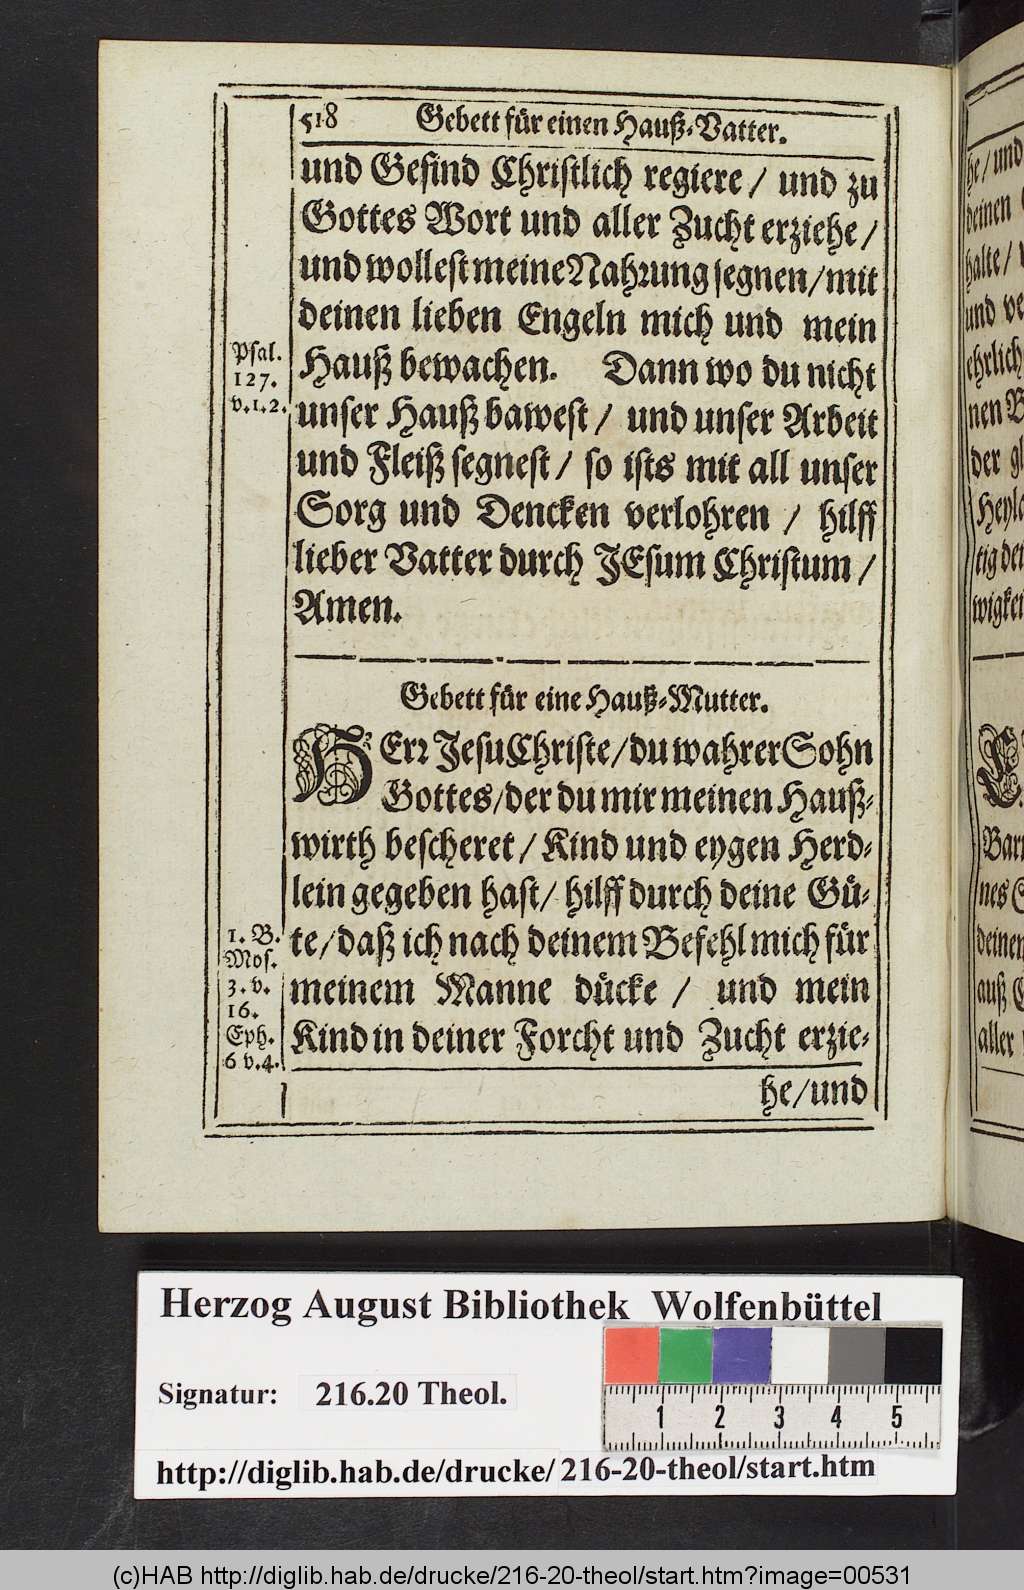 518 Gebett für einen Hauß-Vatter.
und Gesind Christlich regiere / und zu
Gottes Wort und aller Zucht erziehe /
und wollest meine Nahrung segnen / mit
deinen lieben Engeln mich und mein
Hauß bewachen. Dann wo du nicht
unser Hauß bawest / und unser Arbeit
und Fleiß segnest / so ists mit all unser
Sorg und Dencken verlohren / hilff
lieber Vatter durch JEsum Christum /
Amen.
Psal.
127.
v.1.2.
Gebett für eine Hauß-Mutter.
HErr Jesu Christe / du wahrer Sohn
Gottes / der du mir meinen Hauß-
wirth bescheret / Kind und eygen Herd-
lein gegeben hast / hilff durch deine Gü-
te / daß ich nach deinem Befehl mich für
meinem Manne dücke / und mein
Kind in deiner Forcht und Zucht erzie-
he / und
1. B.
Mos.
3. v.
16.
Eph.
6 v.4.
he / und
deinen
halte /
und ve
ehrlich
nen B
der gl
Heyl
tig dei
wigkei
E
Bar
nes S
deinen
auß
aller
Herzog August Bibliothek Wolfenbüttel
Signatur: 216.20 Theol.
1 2 3 4 5
http://diglib.hab.de/drucke/216-20-theol/start.htm
(c)HAB http://diglib.hab.de/drucke/216-20-theol/start.htm?image=00531